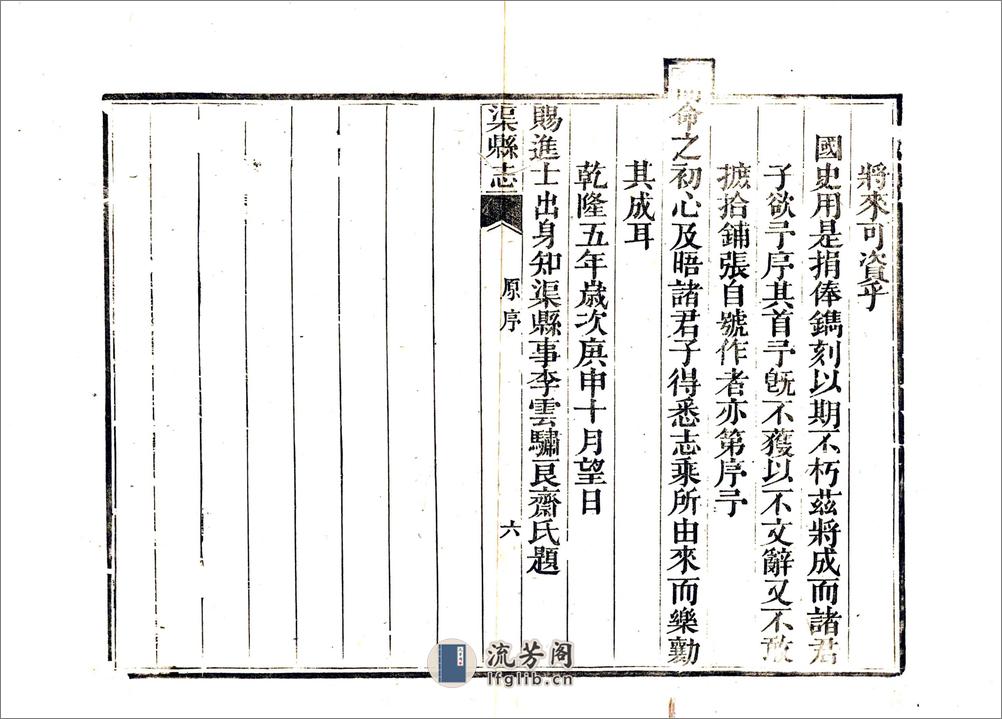 將來可資乎
國史用是捐俸鐫刻以期不朽茲將成而諸君
子欲予序其首予旣不獲以不文辭又不敢
摭拾鋪張自號作者亦第序予
命之初心及晤諸君子得悉志乘所由來而樂勷
其成耳
乾隆五年歲次庚申十月望日
賜進士出身知渠縣事李雲驌艮齋氏題
渠縣志
原序
六
流芳阁
lfglib.cn